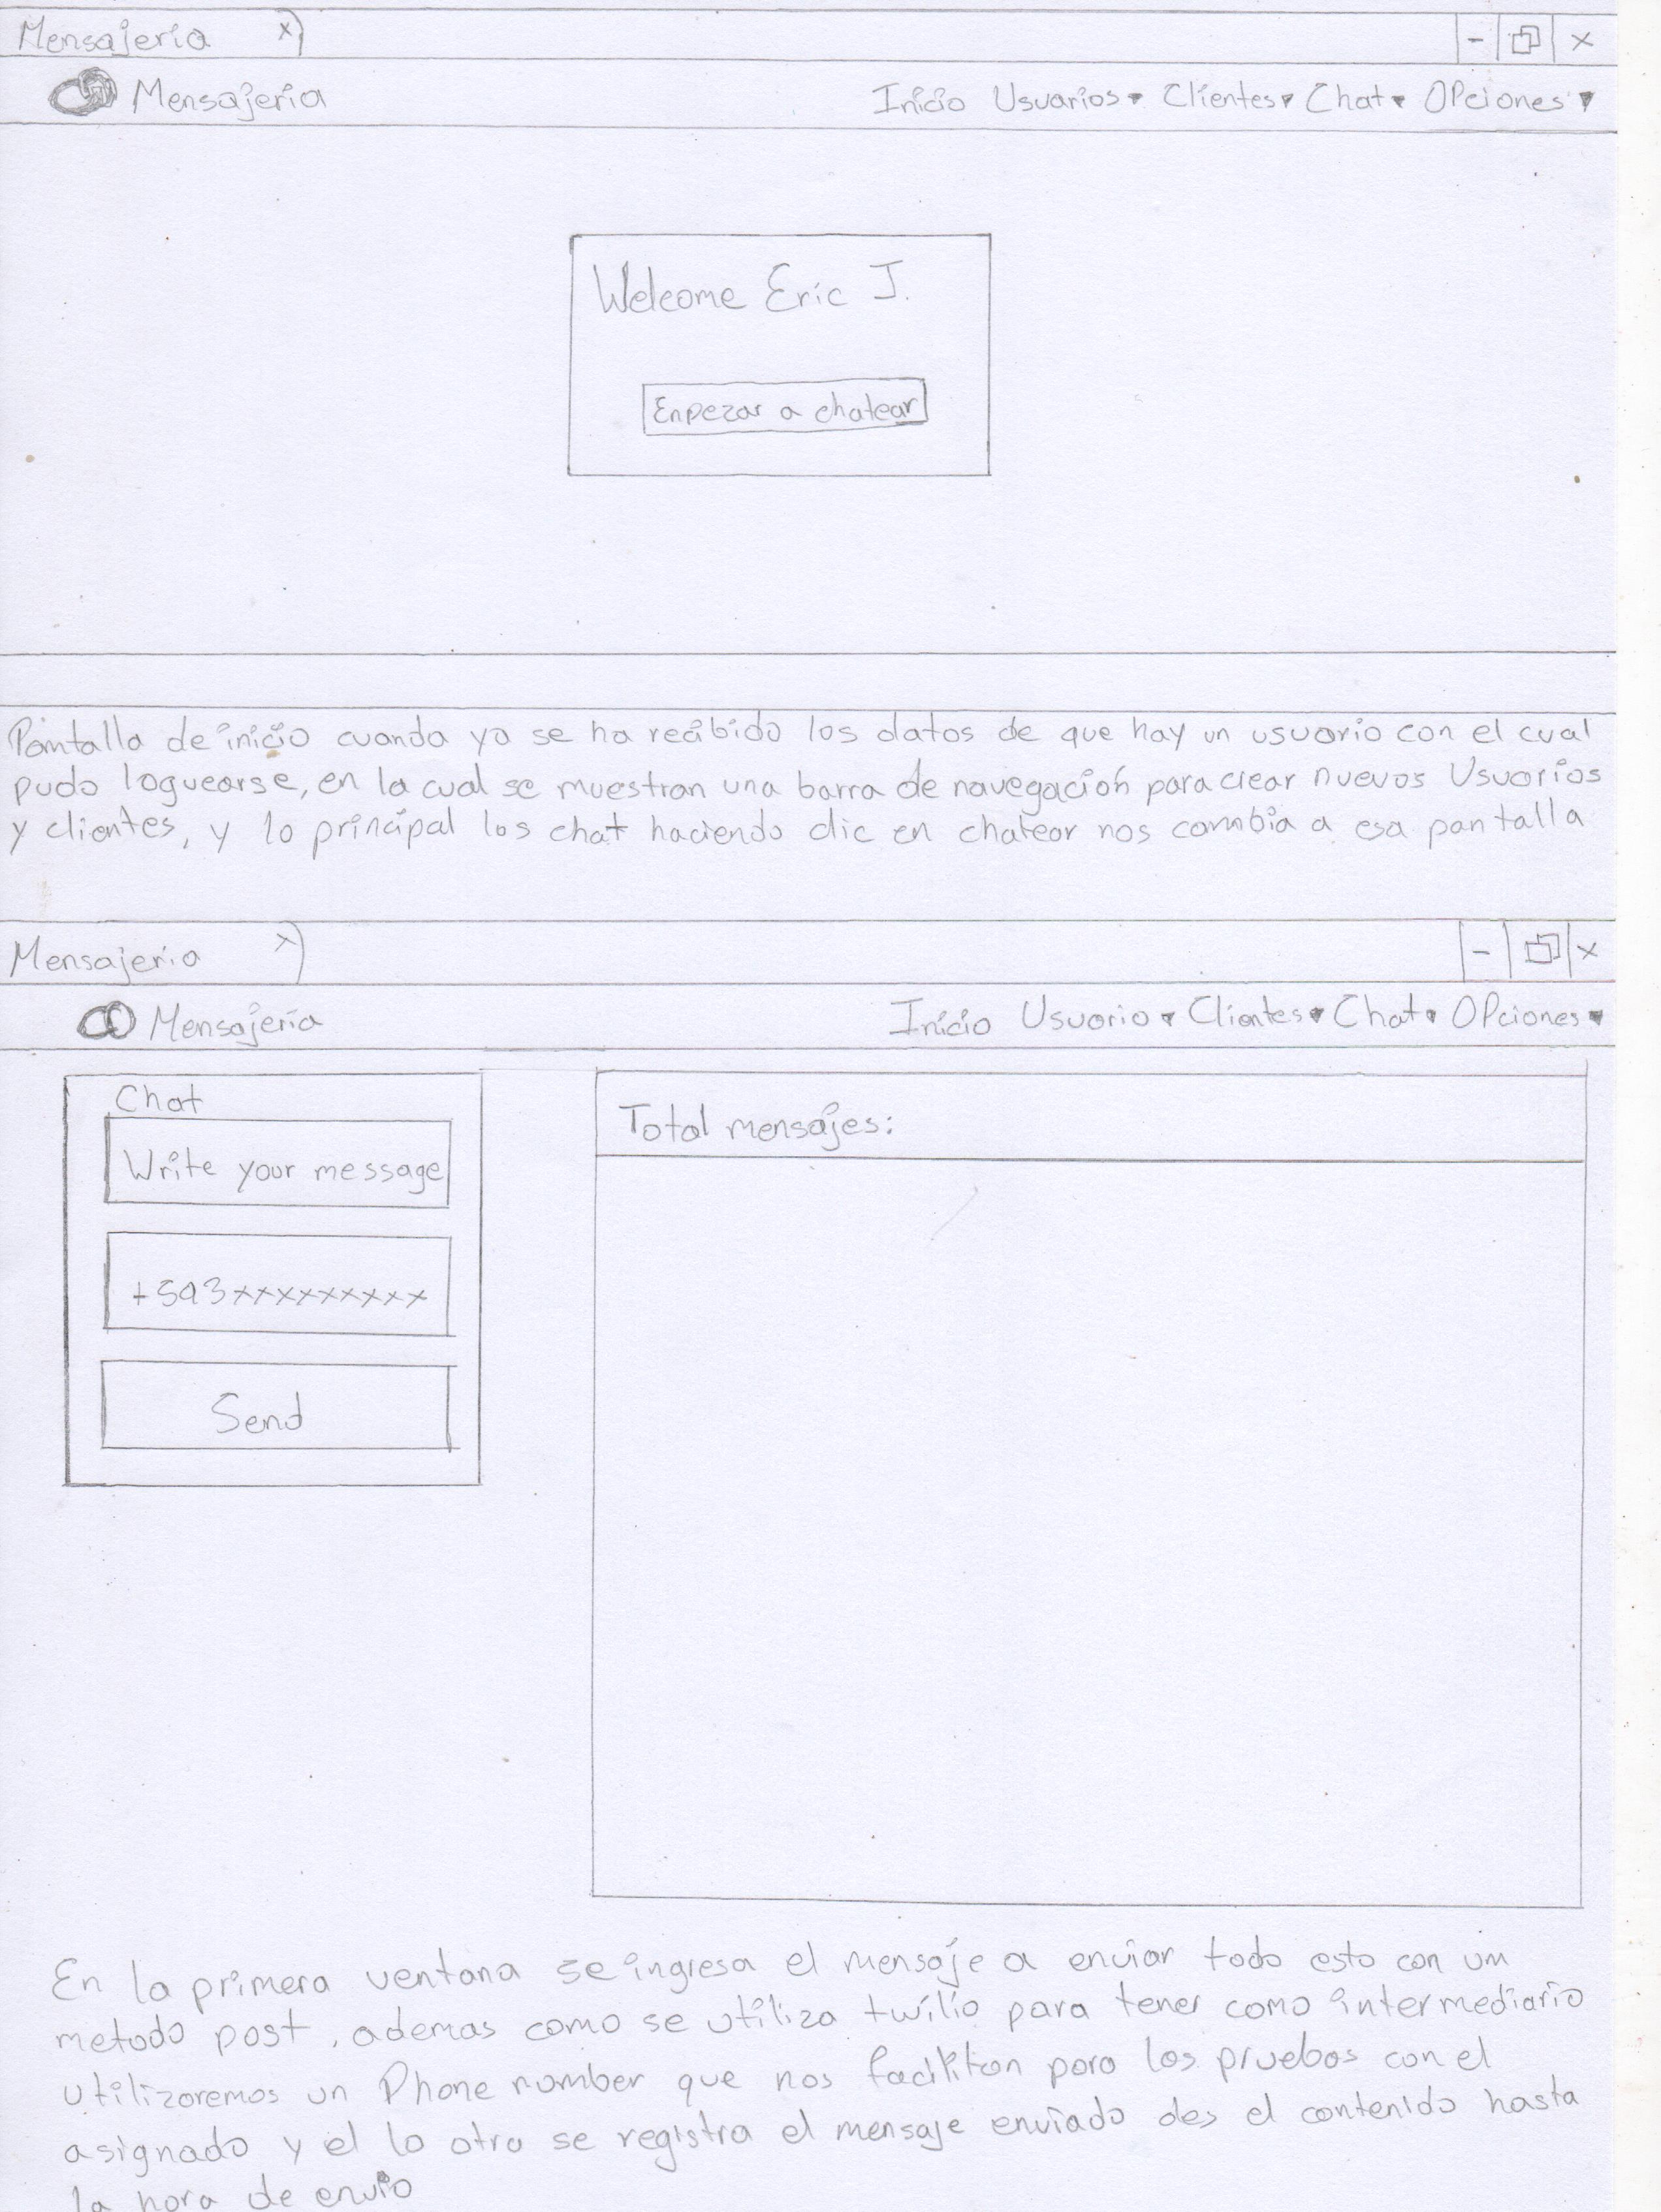 Mensajeria x - x
Mensajeria Inicio Usuarios Clientes Chat Opciones
Welcome Eric J.
Enpezar a chatear
Pantalla de inicio cuando ya se ha recibido los datos de que hay un usuario con el cual
pudo loguearse, en la cual se muestran una barra de navegación para crear nuevos Usuarios
y clientes, y lo principal los chat haciendo clic en chatear nos cambia a esa pantalla
Mensajeria x - x
Mensajeria Inicio Usuario Clientes Chat Opciones
Chat
Write your message
+593xxxxxxxxx
Send
Total mensajes:
En la primera ventana se ingresa el mensaje a enviar todo esto con un
metodo post, ademas como se utiliza twilio para tener como intermediario
utilizaremos un Phone number que nos facilitan para las pruebas con el
asignado y el lo otro se registra el mensaje enviado des el contenido hasta
la hora de envio